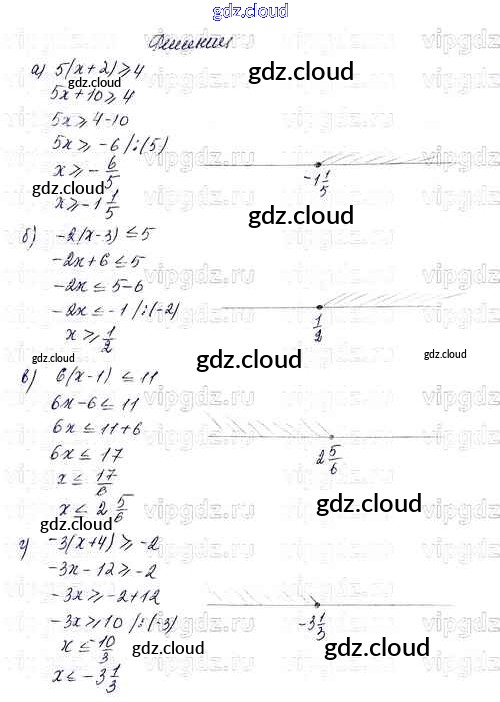 gdz.cloud
gdz.cloud
Решения
а) 5(x+2) ⩾ 4
5x+10 ⩾ 4
5x ⩾ 4-10
5x ⩾ -6 /:(5)
x ⩾ -6/5
x ⩾ -1 1/5
-1 1/5
б) -2(x-3) ≤ 5
-2x+6 ≤ 5
-2x ≤ 5-6
-2x ≤ -1 /:(-2)
x ⩾ 1/2
1/2
в) 6(x-1) ≤ 11
6x-6 ≤ 11
6x ≤ 11+6
6x ≤ 17
x ≤ 17/6
x ≤ 2 5/6
2 5/6
г) -3(x+4) ⩾ -2
-3x-12 ⩾ -2
-3x ⩾ -2+12
-3x ⩾ 10 /:(-3)
x ≤ -10/3
x ≤ -3 1/3
-3 1/3
gdz.cloud
gdz.cloud
gdz.cloud
gdz.cloud
gdz.cloud
gdz.cloud
gdz.cloud
gdz.cloud
gdz.cloud
gdz.cloud
gdz.cloud
gdz.cloud
vipgdz.ru